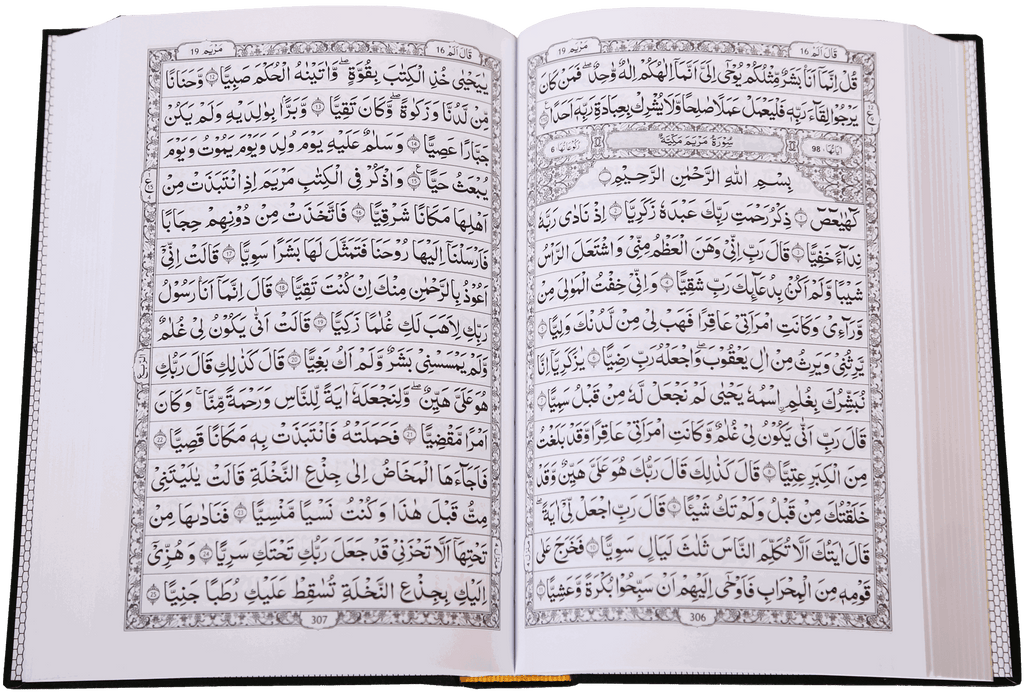 قَالَ اَلَمْ 16
مَرْيَم 19
قُلْ اِنَّمَاۤ اَنَا بَشَرٌ مِّثْلُكُمْ يُوْحٰۤى اِلَيَّ اَنَّمَاۤ اِلٰهُكُمْ اِلٰهٌ وَّاحِدٌ ۚ فَمَنْ كَانَ
يَرْجُوْا لِقَآءَ رَبِّهٖ فَلْيَعْمَلْ عَمَلًا صَالِحًا وَّلَا يُشْرِكْ بِعِبَادَةِ رَبِّهٖۤ اَحَدًا
اٰيَاتُهَا 98 سُوْرَةُ مَرْيَمَ مَكِّيَّةٌ رُكُوْعَاتُهَا 6
بِسْمِ اللّٰهِ الرَّحْمٰنِ الرَّحِيْمِ
كٓهٰيٰعٓصٓ ۝ ذِكْرُ رَحْمَتِ رَبِّكَ عَبْدَهٗ زَكَرِيَّا ۝ اِذْ نَادٰى رَبَّهٗ
نِدَآءً خَفِيًّا ۝ قَالَ رَبِّ اِنِّيْ وَهَنَ الْعَظْمُ مِنِّيْ وَاشْتَعَلَ الرَّاْسُ
شَيْبًا وَّلَمْ اَكُنْۢ بِدُعَآئِكَ رَبِّ شَقِيًّا ۝ وَاِنِّيْ خِفْتُ الْمَوَالِيَ مِنْ
وَّرَآءِيْ وَكَانَتِ امْرَاَتِيْ عَاقِرًا فَهَبْ لِيْ مِنْ لَّدُنْكَ وَلِيًّا ۝
يَّرِثُنِيْ وَيَرِثُ مِنْ اٰلِ يَعْقُوْبَ ۖ وَاجْعَلْهُ رَبِّ رَضِيًّا ۝ يٰزَكَرِيَّاۤ اِنَّا
نُبَشِّرُكَ بِغُلٰمِ ِۨاسْمُهٗ يَحْيٰى لَمْ نَجْعَلْ لَّهٗ مِنْ قَبْلُ سَمِيًّا ۝
قَالَ رَبِّ اَنّٰى يَكُوْنُ لِيْ غُلٰمٌ وَّكَانَتِ امْرَاَتِيْ عَاقِرًا وَّقَدْ بَلَغْتُ
مِنَ الْكِبَرِ عِتِيًّا ۝ قَالَ كَذٰلِكَ قَالَ رَبُّكَ هُوَ عَلَيَّ هَيِّنٌ وَّقَدْ
خَلَقْتُكَ مِنْ قَبْلُ وَلَمْ تَكُ شَيْئًا ۝ قَالَ رَبِّ اجْعَلْ لِّيْۤ اٰيَةً ۚ
قَالَ اٰيَتُكَ اَلَّا تُكَلِّمَ النَّاسَ ثَلٰثَ لَيَالٍ سَوِيًّا ۝ فَخَرَجَ عَلٰى
قَوْمِهٖ مِنَ الْمِحْرَابِ فَاَوْحٰۤى اِلَيْهِمْ اَنْ سَبِّحُوْا بُكْرَةً وَّعَشِيًّا ۝
306
قَالَ اَلَمْ 16
مَرْيَم 19
يٰيَحْيٰى خُذِ الْكِتٰبَ بِقُوَّةٍ ۖ وَاٰتَيْنٰهُ الْحُكْمَ صَبِيًّا ۝12 وَّحَنَانًا
مِّنْ لَّدُنَّا وَزَكٰوةً ۖ وَكَانَ تَقِيًّا ۝13 وَّبَرًّۢا بِوَالِدَيْهِ وَلَمْ يَكُنْ
جَبَّارًا عَصِيًّا ۝14 وَسَلٰمٌ عَلَيْهِ يَوْمَ وُلِدَ وَيَوْمَ يَمُوْتُ وَيَوْمَ
يُبْعَثُ حَيًّا ۝15 وَاذْكُرْ فِي الْكِتٰبِ مَرْيَمَ اِذِ انْتَبَذَتْ مِنْ
اَهْلِهَا مَكَانًا شَرْقِيًّا ۝16 فَاتَّخَذَتْ مِنْ دُوْنِهِمْ حِجَابًا
فَاَرْسَلْنَاۤ اِلَيْهَا رُوْحَنَا فَتَمَثَّلَ لَهَا بَشَرًا سَوِيًّا ۝17 قَالَتْ اِنِّيْۤ
اَعُوْذُ بِالرَّحْمٰنِ مِنْكَ اِنْ كُنْتَ تَقِيًّا ۝18 قَالَ اِنَّمَاۤ اَنَا رَسُوْلُ
رَبِّكِ لِاَهَبَ لَكِ غُلٰمًا زَكِيًّا ۝19 قَالَتْ اَنّٰى يَكُوْنُ لِيْ غُلٰمٌ
وَّلَمْ يَمْسَسْنِيْ بَشَرٌ وَّلَمْ اَكُ بَغِيًّا ۝20 قَالَ كَذٰلِكِ قَالَ رَبُّكِ
هُوَ عَلَيَّ هَيِّنٌ ۖ وَلِنَجْعَلَهٗۤ اٰيَةً لِّلنَّاسِ وَرَحْمَةً مِّنَّا ۚ وَكَانَ
اَمْرًا مَّقْضِيًّا ۝21 فَحَمَلَتْهُ فَانْتَبَذَتْ بِهٖ مَكَانًا قَصِيًّا ۝22
فَاَجَآءَهَا الْمَخَاضُ اِلٰى جِذْعِ النَّخْلَةِ قَالَتْ يٰلَيْتَنِيْ
مِتُّ قَبْلَ هٰذَا وَكُنْتُ نَسْيًا مَّنْسِيًّا ۝23 فَنَادٰىهَا مِنْ
تَحْتِهَاۤ اَلَّا تَحْزَنِيْ قَدْ جَعَلَ رَبُّكِ تَحْتَكِ سَرِيًّا ۝24 وَهُزِّيْۤ
اِلَيْكِ بِجِذْعِ النَّخْلَةِ تُسٰقِطْ عَلَيْكِ رُطَبًا جَنِيًّا ۝25
307